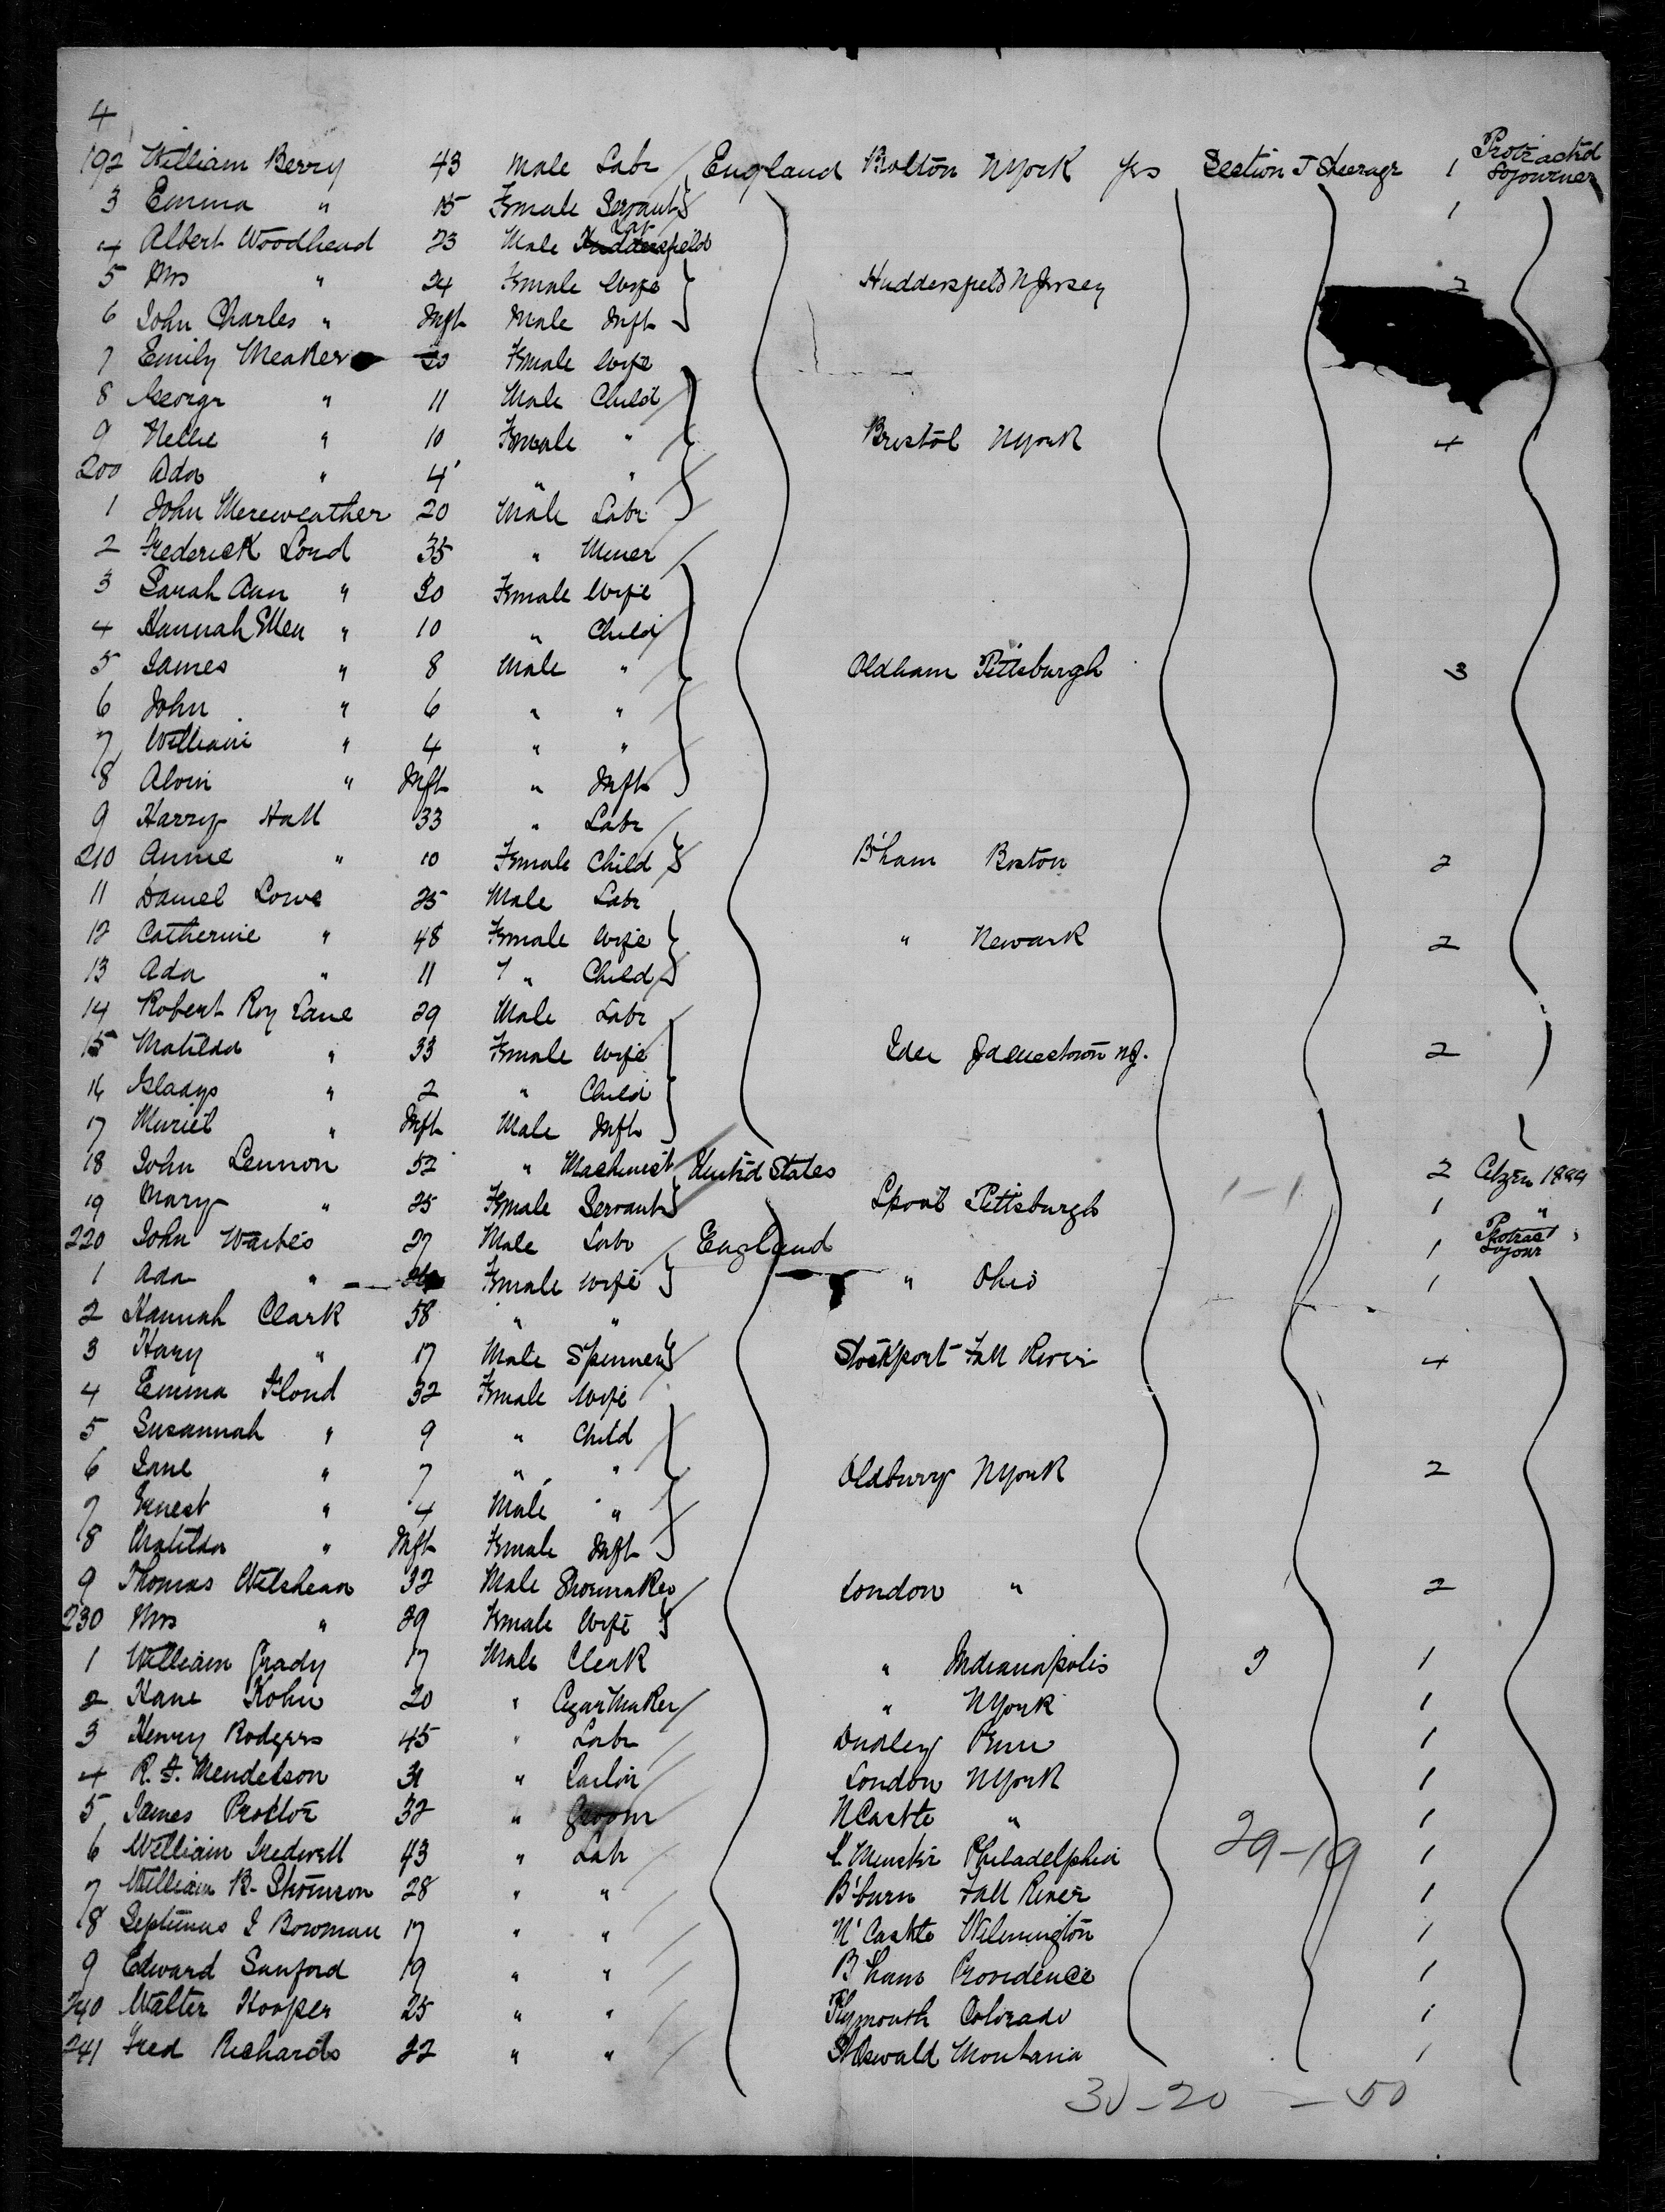 4
192 William Berry 43 Male Labr England Bolton NYork Yes Section J Steerage 1 Protractd Sojourner
3 Emma " 15 Female Servant 1
4 Albert Woodhead 23 Male Labr Huddersfield
5 Mrs " 24 Female Wife Huddersfield NJersey 2
6 John Charles " Inft Male Inft
7 Emily Meaker 30 Female Wife
8 George " 11 Male Child
9 Nellie " 10 Female " Bristol NYork 4
200 Ada " 4 " "
1 John Mereweather 20 Male Labr
2 Frederick Lond 35 " Miner
3 Sarah Ann " 30 Female Wife
4 Hannah Ellen " 10 " Child
5 James " 8 Male " Oldham Pittsburgh 3
6 John " 6 " "
7 William " 4 " "
8 Alvin " Inft " Inft
9 Harry Hall 33 " Labr
210 Annie " 10 Female Child B'ham Boston 2
11 Daniel Lowe 25 Male Labr
12 Catherine " 48 Female Wife " Newark 2
13 Ada " 11 " Child
14 Robert Roy Lane 29 Male Labr
15 Matilda " 33 Female Wife Jamestown NJ. 2
16 Gladys " 2 " Child
17 Muriel " Inft Male Inft
18 John Lennon 52 " Machinist United States 2 Citzen 1889
19 Mary " 25 Female Servant Lpool Pittsburgh 1-1 1 "
220 John Waites 27 Male Labr England 1 Protract Sojour
1 Ada " Female Wife " Ohio 1
2 Hannah Clark 58 " "
3 Harry " 17 Male Spinner Stockport Fall River 4
4 Emma Flond 32 Female Wife
5 Susannah " 9 " Child
6 Jane " 7 " " Oldbury NYork 2
7 Ernest " 4 Male "
8 Matilda " Inft Female Inft
9 Thomas 32 Male Shoemaker London " 2
230 Mrs " 29 Female Wife
1 William Grady 17 Male Clerk " Indianapolis 2 1
2 Hane Kohn 20 " Cigar Maker " NYork 1
3 Henry Rodgers 45 " Labr Dudley Penn 1
4 R. F. Mendelson 31 " Tailor London NYork 1
5 James Proctor 32 " Groom NCastle " 1
6 William Tredwell 43 " Labr Philadelphia 29-19 1
7 William B. Thomson 28 " " B'burn Fall River 1
8 Septimus J Bowman 17 " " N'Castle Wilmington 1
9 Edward Sanford 19 " " B'ham Providence 1
240 Walter Hooper 25 " " Plymouth Colorado 1
241 Fred Richards 22 " " St Oswald Montana 1
30-20 - 50